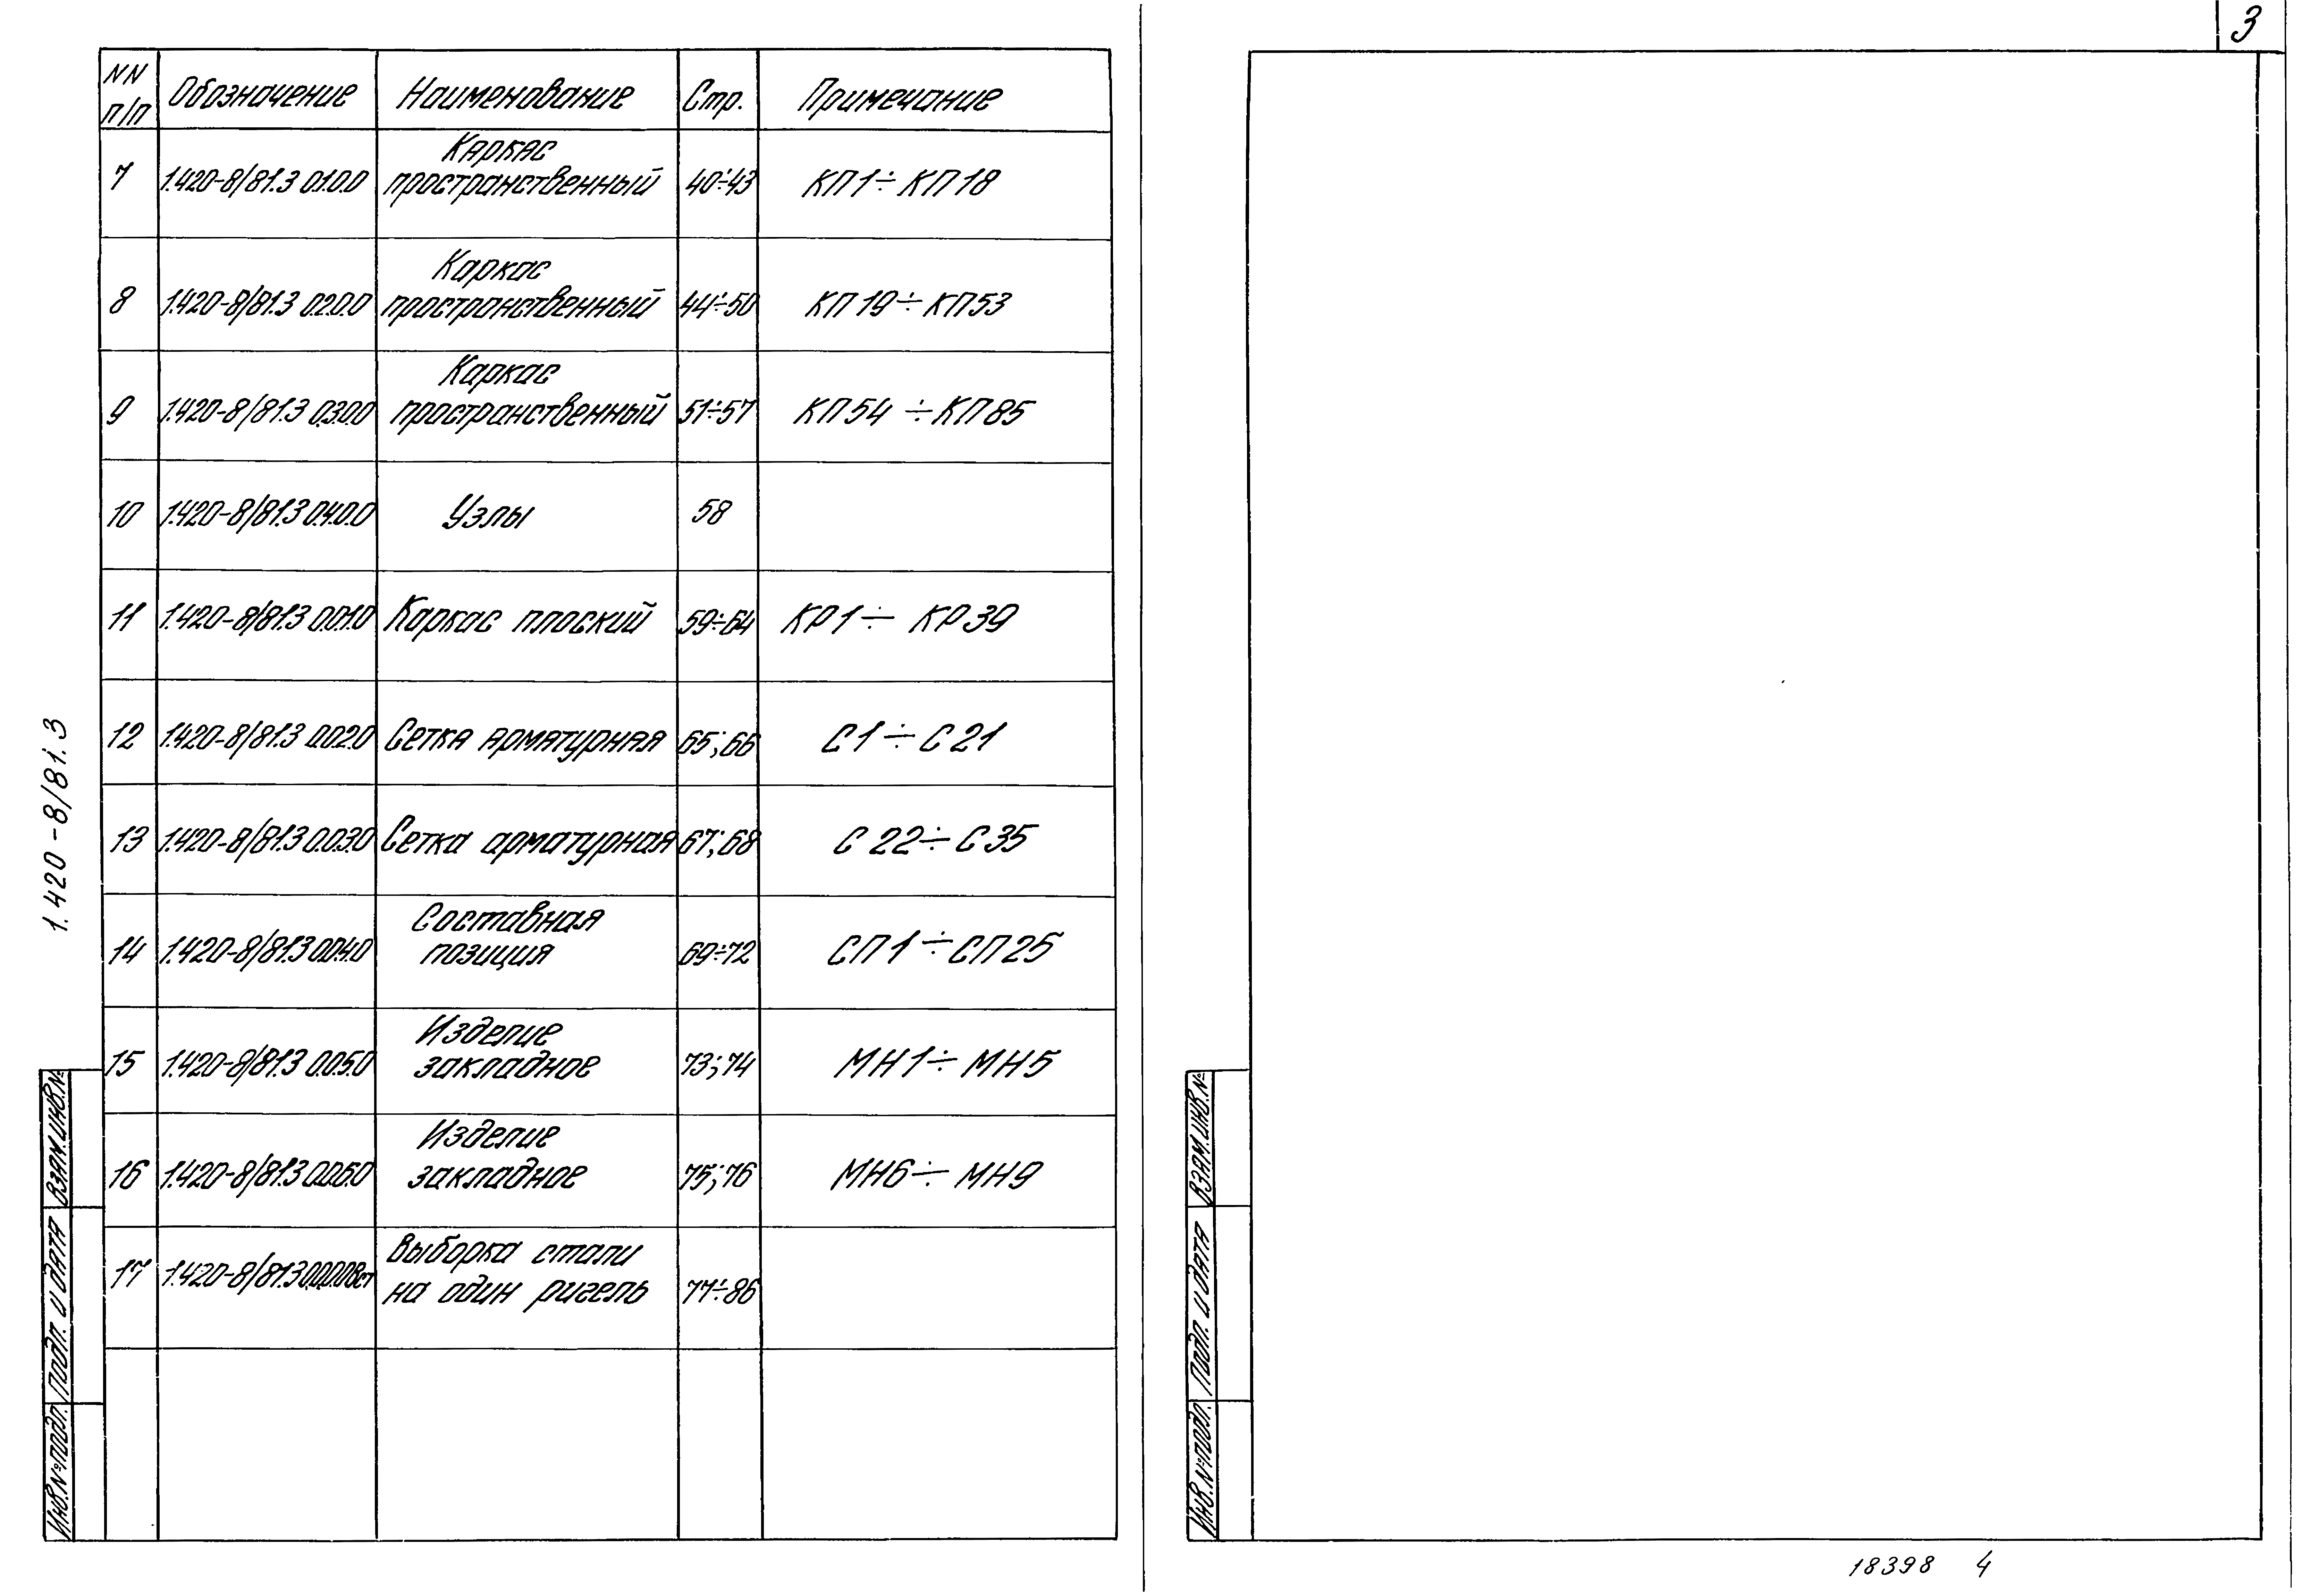 3
NN п/п Обозначение Наименование Стр. Примечание
7 1.420-8/81.3 0.1.0.0 Каркас пространственный 40÷43 КП1÷КП18
8 1.420-8/81.3 0.2.0.0 Каркас пространственный 44÷50 КП19÷КП53
9 1.420-8/81.3 0.3.0.0 Каркас пространственный 51÷57 КП54÷КП85
10 1.420-8/81.3 0.4.0.0 Узлы 58
11 1.420-8/81.3 0.0.1.0 Каркас плоский 59÷64 КР1÷КР39
12 1.420-8/81.3 0.0.2.0 Сетка арматурная 65;66 С1÷С21
13 1.420-8/81.3 0.0.3.0 Сетка арматурная 67;68 С22÷С35
14 1.420-8/81.3 0.0.4.0 Составная позиция 69÷72 СП1÷СП25
15 1.420-8/81.3 0.0.5.0 Изделие закладное 73;74 МН1÷МН5
16 1.420-8/81.3 0.0.6.0 Изделие закладное 75;76 МН6÷МН9
17 1.420-8/81.3 0.0.0.0Вст Выборка стали на один ригель 77÷86
1.420-8/81.3
Взам.инв.№
Подп. и дата
Инв.№подл.
Взам.инв.№
Подп. и дата
Инв.№подл.
18398 4